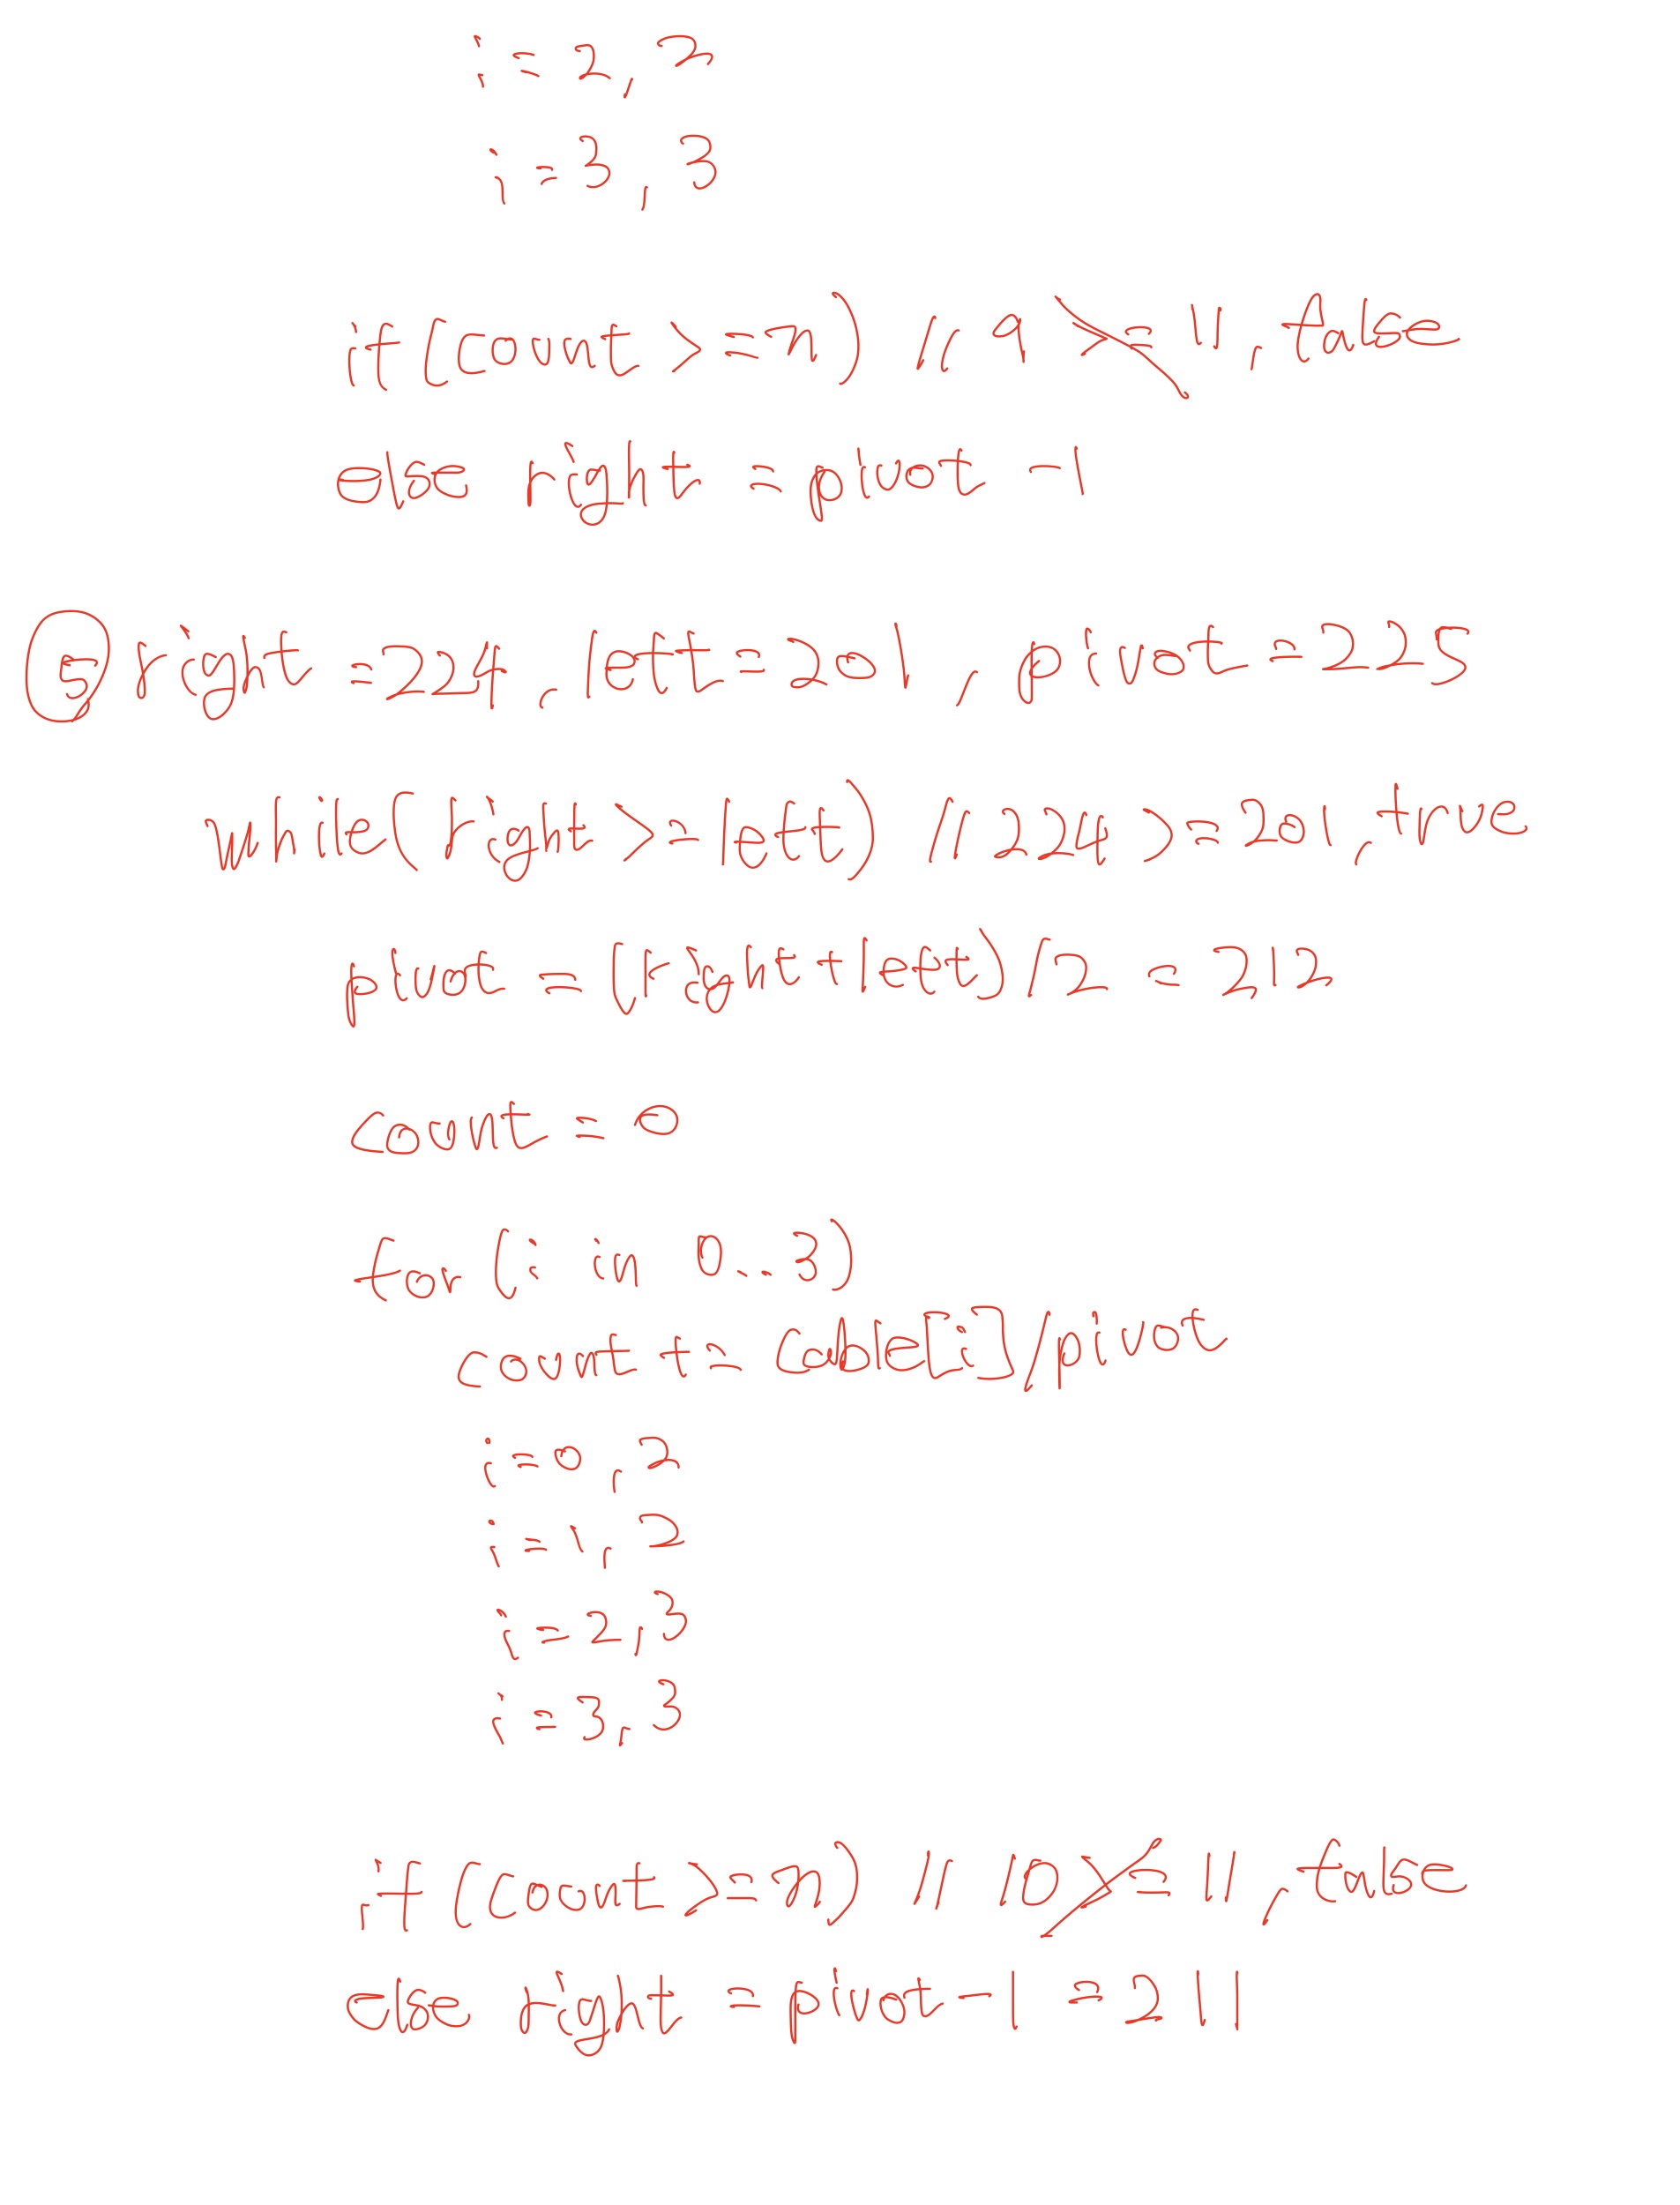 i = 2, 2
i = 3, 3
if (count >= n) // 9 >= 11, false
else right = pivot - 1
⑤ right = 224, left = 201, pivot = 225
while (right >= left) // 224 >= 201, true
pivot = (right + left) / 2 = 212
count = 0
for (i in 0..3)
count += cable[i] / pivot
i = 0, 2
i = 1, 2
i = 2, 3
i = 3, 3
if (count >= n) // 10 >= 11, false
else right = pivot - 1 = 211